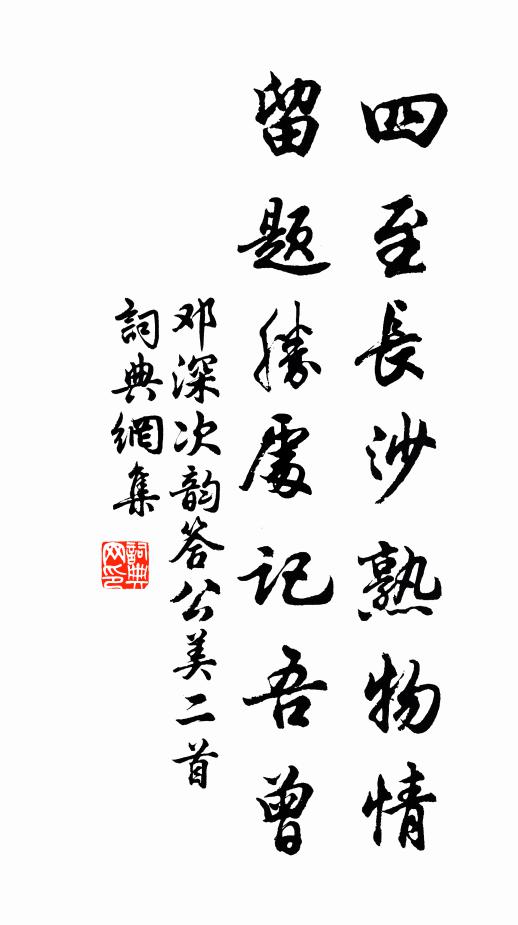 四至長沙熟物情
留題勝處記吾曾
邓深次韵答公美二首
詞典網集
詞典网印